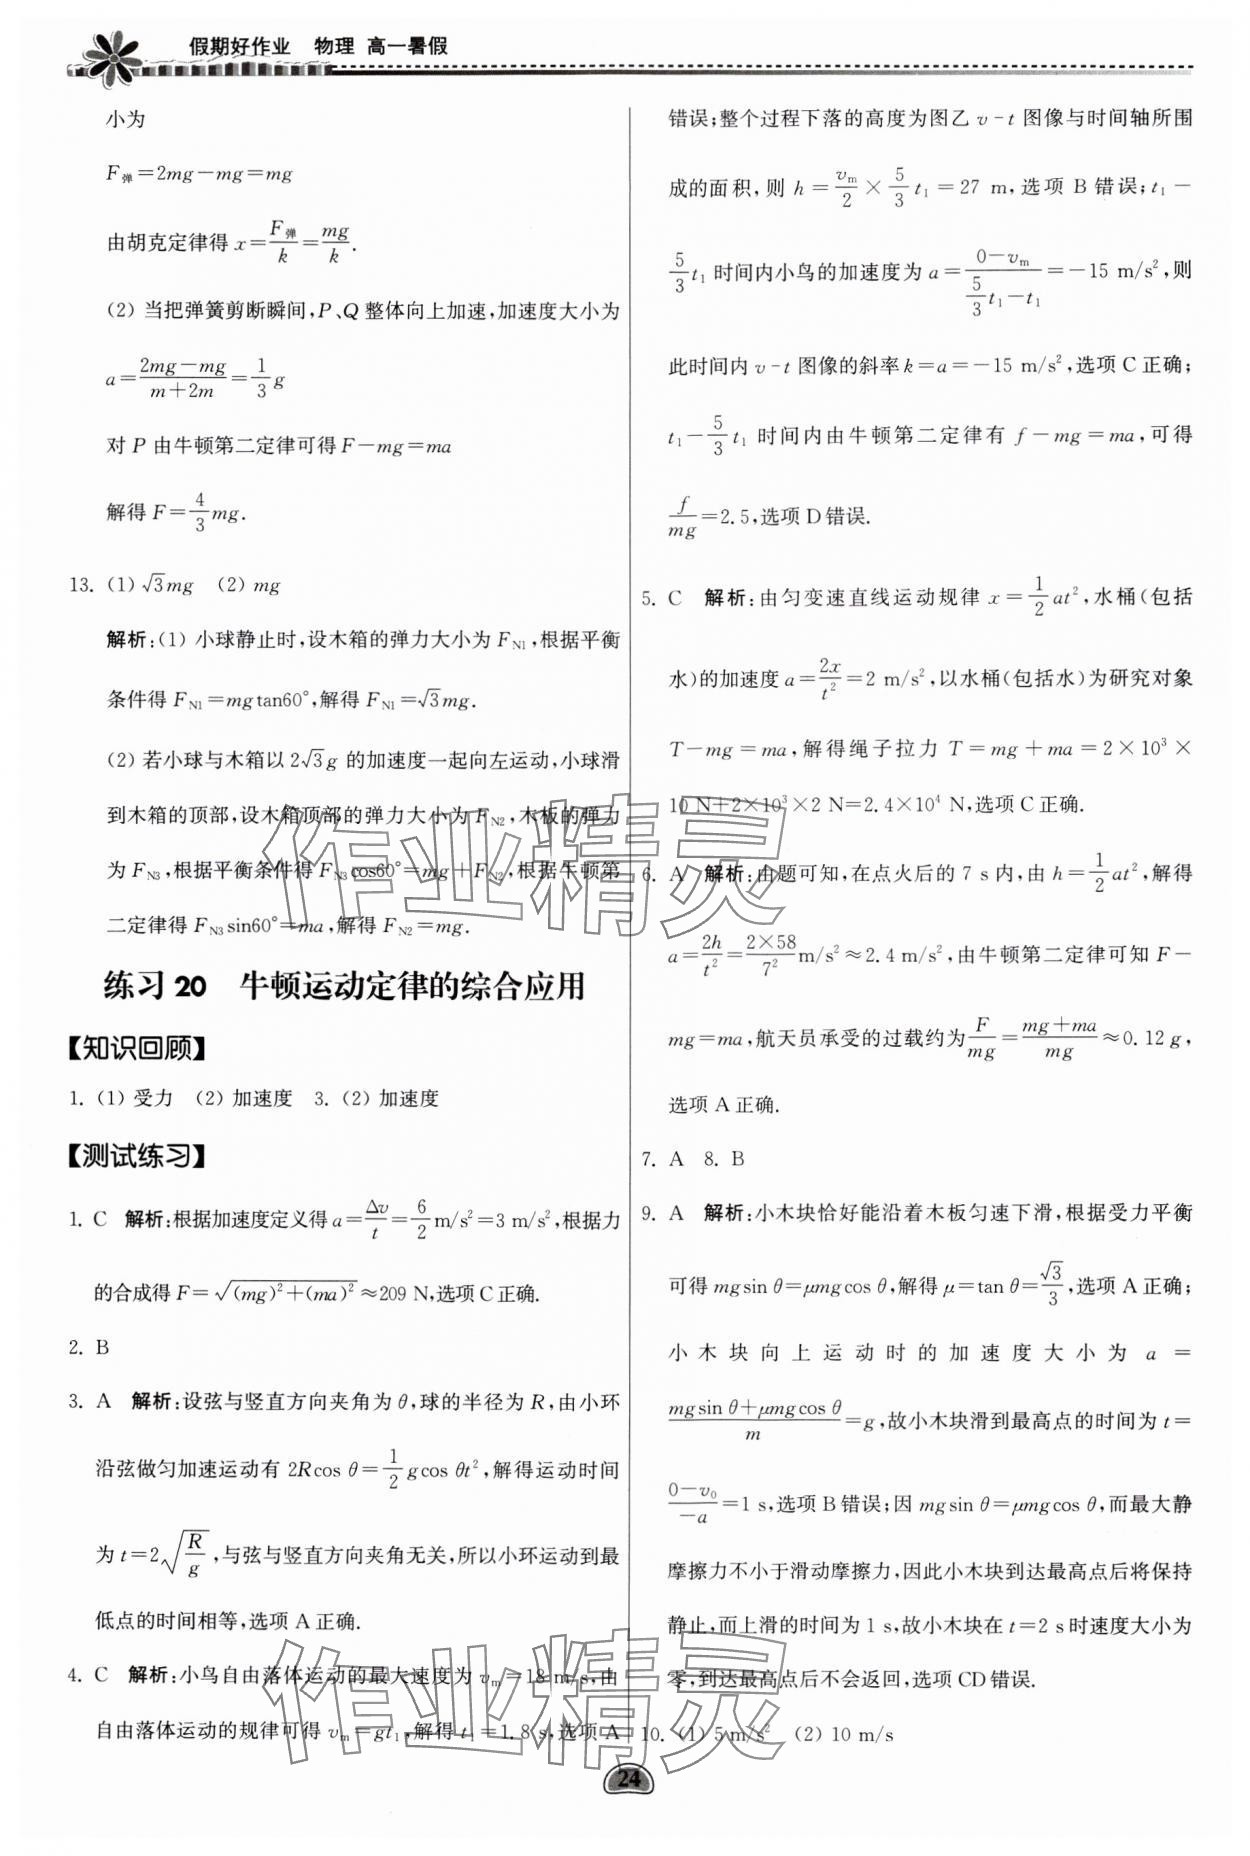 假期好作业 物理 高一暑假
小为
F弹=2mg-mg=mg
由胡克定律得 x=F弹/k=mg/k.
(2) 当把弹簧剪断瞬间,P、Q 整体向上加速,加速度大小为
a=(2mg-mg)/(m+2m)=1/3 g
对 P 由牛顿第二定律可得 F-mg=ma
解得 F=4/3 mg.
13. (1) √3mg (2) mg
解析:(1) 小球静止时,设木箱的弹力大小为 F_N1,根据平衡
条件得 F_N1=mgtan60°,解得 F_N1=√3mg.
(2) 若小球与木箱以 2√3g 的加速度一起向左运动,小球滑
到木箱的顶部,设木箱顶部的弹力大小为 F_N2,木板的弹力
为 F_N3,根据平衡条件得 F_N3cos60°=mg+F_N2,根据牛顿第
二定律得 F_N3sin60°=ma,解得 F_N2=mg.
练习 20 牛顿运动定律的综合应用
【知识回顾】
1. (1) 受力 (2) 加速度 3. (2) 加速度
【测试练习】
1. C 解析:根据加速度定义得 a=Δv/t=6/2 m/s²=3 m/s²,根据力
的合成得 F=√((mg)²+(ma)²)≈209 N,选项 C 正确.
2. B
3. A 解析:设弦与竖直方向夹角为 θ,球的半径为 R,由小环
沿弦做匀加速运动有 2Rcos θ=1/2 gcos θt²,解得运动时间
为 t=2√(R/g),与弦与竖直方向夹角无关,所以小环运动到最
低点的时间相等,选项 A 正确.
4. C 解析:小鸟自由落体运动的最大速度为 v_m=18 m/s,由
自由落体运动的规律可得 v_m=gt₁,解得 t₁=1.8 s,选项 A
错误;整个过程下落的高度为图乙 v-t 图像与时间轴所围
成的面积,则 h=v_m/2×5/3 t₁=27 m,选项 B 错误;t₁-
5/3 t₁ 时间内小鸟的加速度为 a=(0-v_m)/(5/3 t₁-t₁)=-15 m/s²,则
此时间内 v-t 图像的斜率 k=a=-15 m/s²,选项 C 正确;
t₁-5/3 t₁ 时间内由牛顿第二定律有 f-mg=ma,可得
f/mg=2.5,选项 D 错误.
5. C 解析:由匀变速直线运动规律 x=1/2 at²,水桶(包括
水)的加速度 a=2x/t²=2 m/s²,以水桶(包括水)为研究对象
T-mg=ma,解得绳子拉力 T=mg+ma=2×10³×
10 N+2×10³×2 N=2.4×10⁴ N,选项 C 正确.
6. A 解析:由题可知,在点火后的 7 s 内,由 h=1/2 at²,解得
a=2h/t²=(2×58)/7² m/s²≈2.4 m/s²,由牛顿第二定律可知 F-
mg=ma,航天员承受的过载约为F/mg=(mg+ma)/mg≈0.12g,
选项 A 正确.
7. A 8. B
9. A 解析:小木块恰好能沿着木板匀速下滑,根据受力平衡
可得 mgsin θ=μmgcos θ,解得 μ=tan θ=√3/3,选项 A 正确;
小木块向上运动时的加速度大小为 a=
(mgsin θ+μmgcos θ)/m=g,故小木块滑到最高点的时间为 t=
(0-v₀)/(-a)=1 s,选项 B 错误;因 mgsin θ=μmgcos θ,而最大静
摩擦力不小于滑动摩擦力,因此小木块到达最高点后将保持
静止,而上滑的时间为 1 s,故小木块在 t=2 s 时速度大小为
零,到达最高点后不会返回,选项 CD 错误.
10. (1) 5 m/s² (2) 10 m/s
24
作业精灵
作业精灵